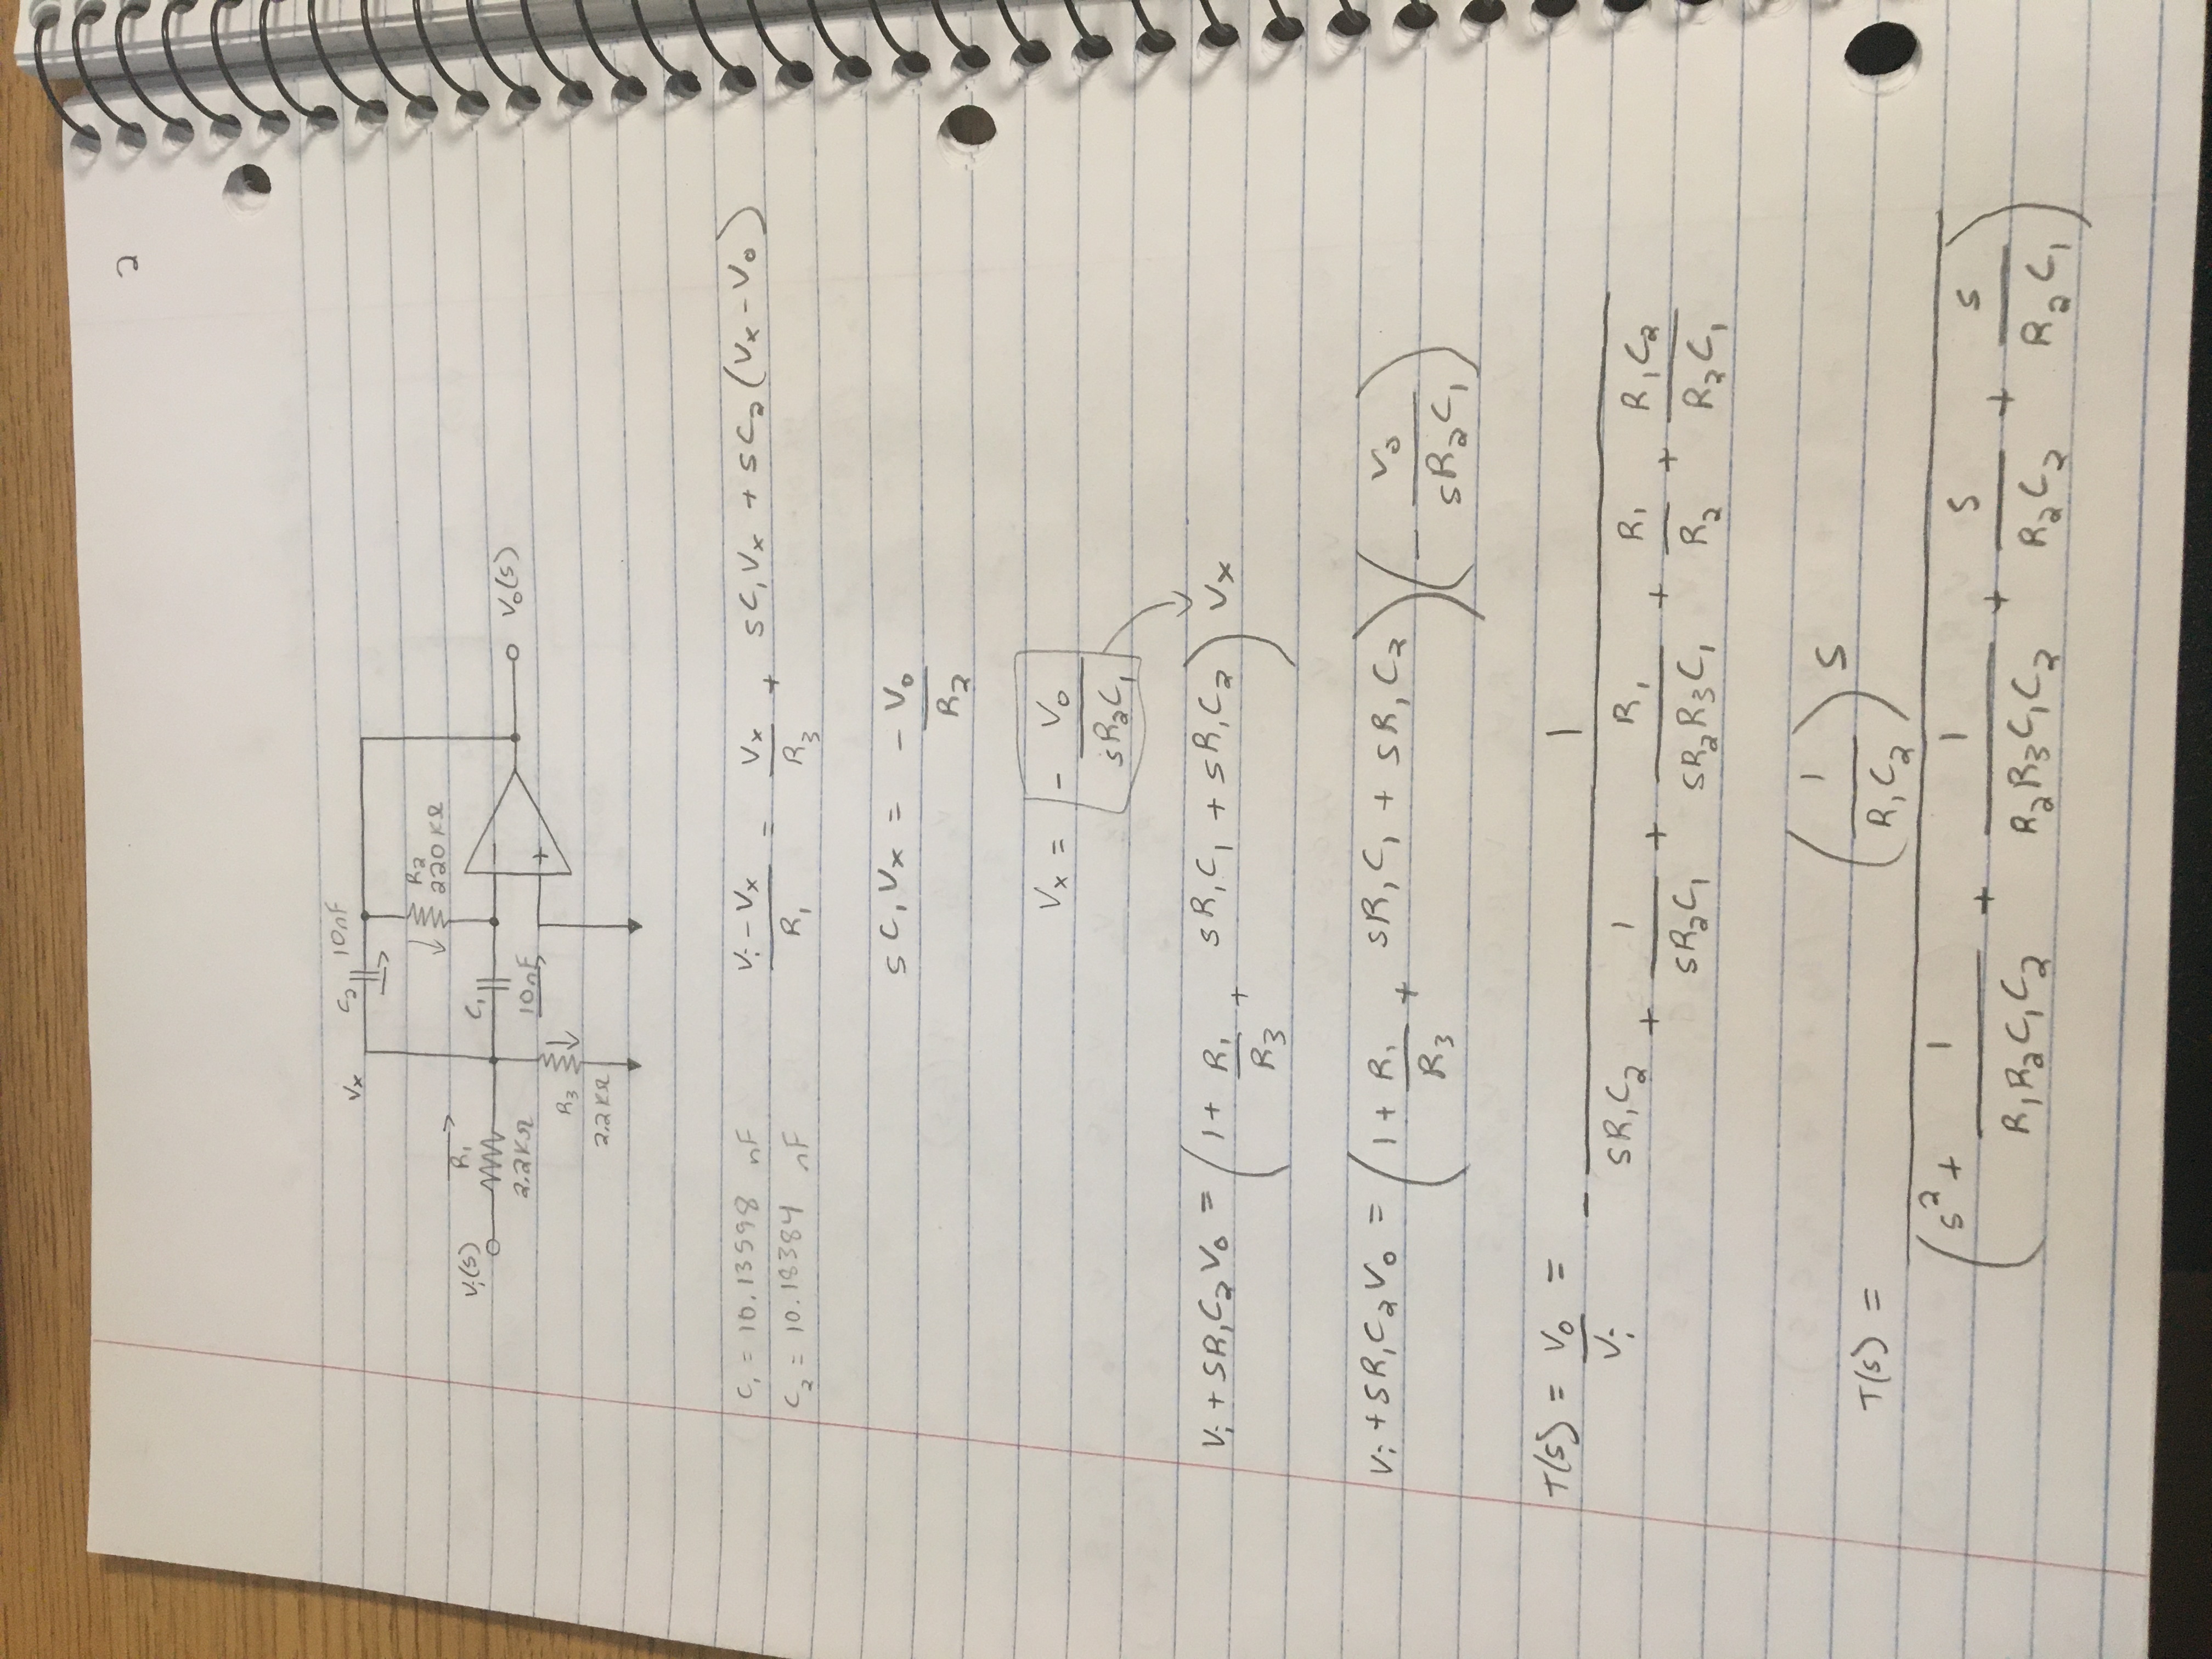 2
Vx C₂ 10nF
R₂
220 KΩ
Vi(s) R₁ C₁ − V₀(s)
2.2KΩ 10nF +
R₃
2.2KΩ
C₁ = 10.13598 nF (Vi − Vx)/R₁ = Vx/R₃ + sC₁Vx + sC₂(Vx − V₀)
C₂ = 10.18384 nF
sC₁Vx = −V₀/R₂
Vx = − V₀/(sR₂C₁)
Vi + sR₁C₂V₀ = (1 + R₁/R₃ + sR₁C₁ + sR₁C₂) Vx
Vi + sR₁C₂V₀ = (1 + R₁/R₃ + sR₁C₁ + sR₁C₂)(− V₀/(sR₂C₁))
T(s) = V₀/Vi = − 1/(sR₁C₂ + 1/(sR₂C₁) + R₁/(sR₂R₃C₁) + R₁/R₂ + R₁C₂/(R₂C₁))
T(s) = (1/(R₁C₂)) s/(s² + 1/(R₁R₂C₁C₂) + 1/(R₂R₃C₁C₂) + s/(R₂C₂) + s/(R₂C₁))